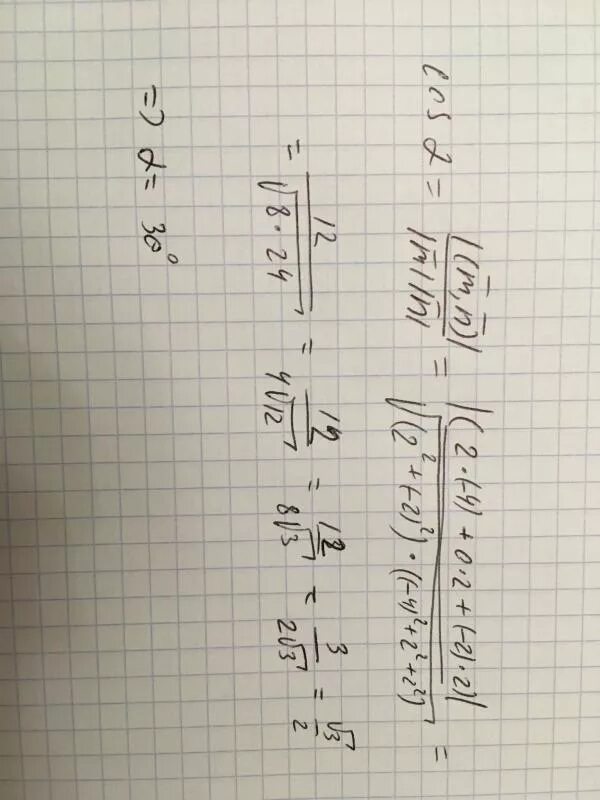 cos α = |(m̄, n̄)| / |m̄| |n̄| = |(2·(-4) + 0·2 + (-2)·2)| / √((2² + (-2)²) · ((-4)² + 2² + 2²)) =
= 12 / √(8·24) = 12 / 4√12 = 12 / 8√3 = 3 / 2√3 = √3 / 2
=> α = 30°